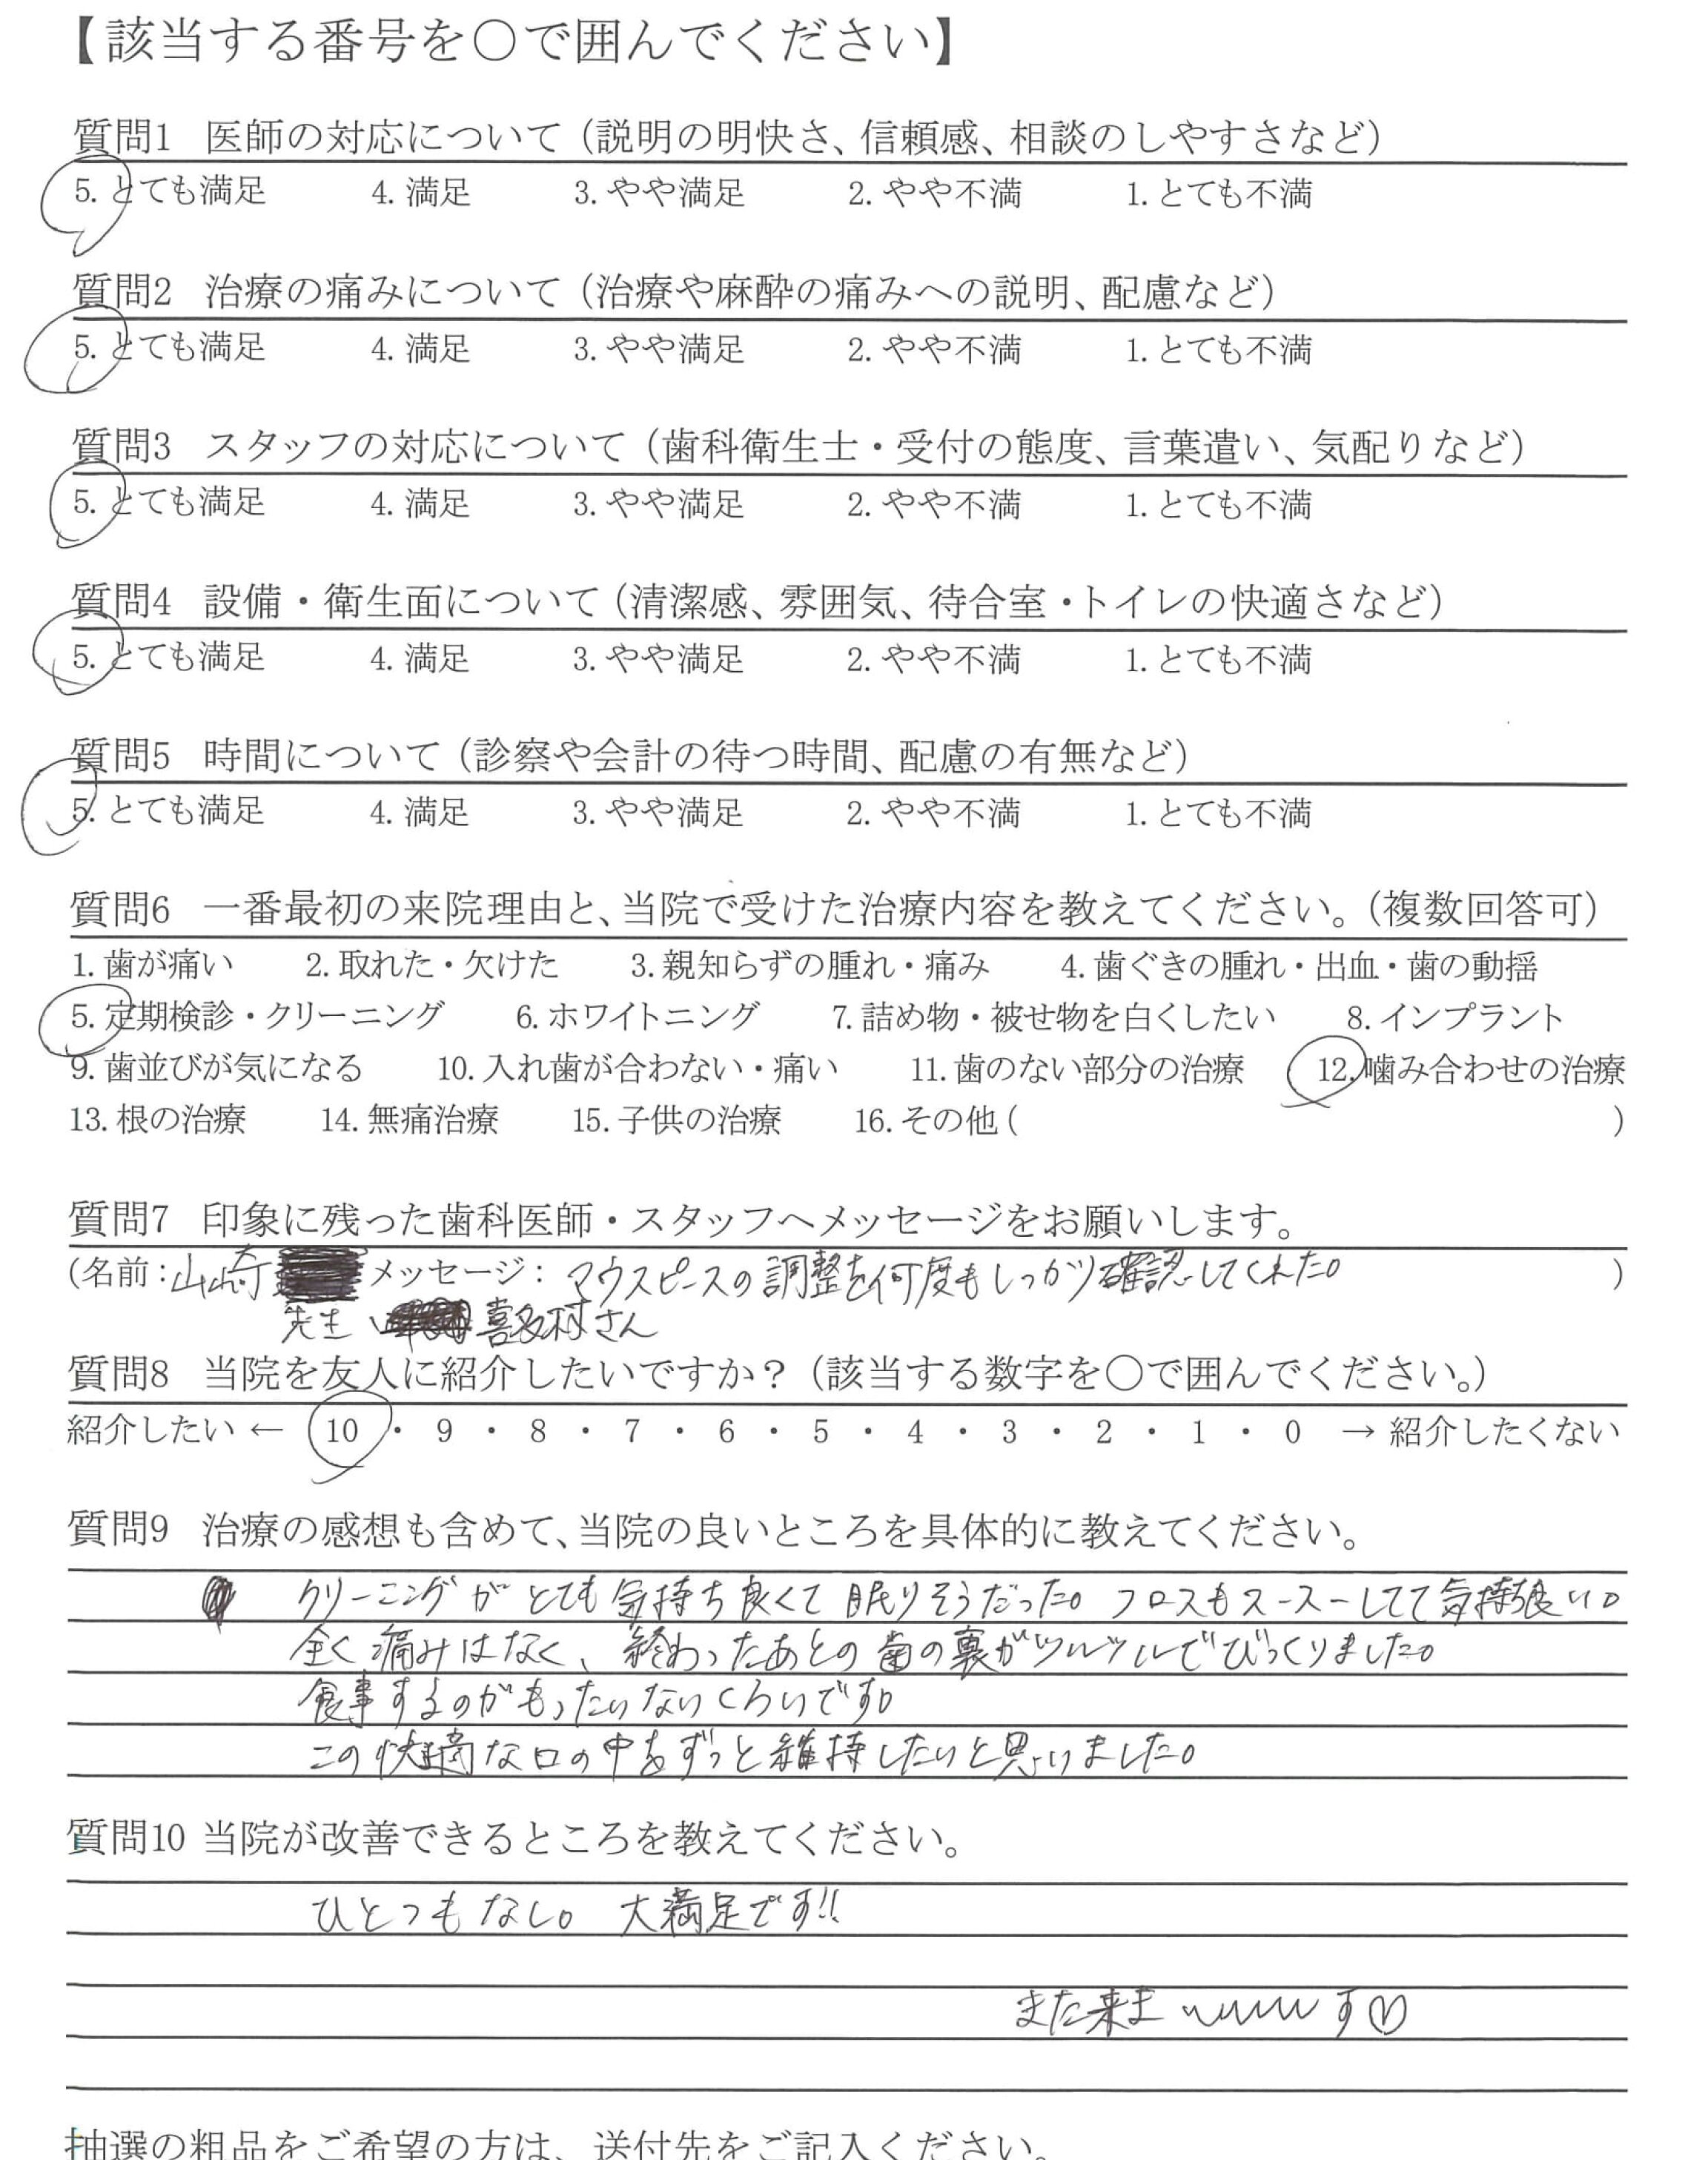 【該当する番号を〇で囲んでください】
質問1 医師の対応について（説明の明快さ、信頼感、相談のしやすさなど）
5. とても満足 4. 満足 3. やや満足 2. やや不満 1. とても不満
質問2 治療の痛みについて（治療や麻酔の痛みへの説明、配慮など）
5. とても満足 4. 満足 3. やや満足 2. やや不満 1. とても不満
質問3 スタッフの対応について（歯科衛生士・受付の態度、言葉遣い、気配りなど）
5. とても満足 4. 満足 3. やや満足 2. やや不満 1. とても不満
質問4 設備・衛生面について（清潔感、雰囲気、待合室・トイレの快適さなど）
5. とても満足 4. 満足 3. やや満足 2. やや不満 1. とても不満
質問5 時間について（診察や会計の待つ時間、配慮の有無など）
5. とても満足 4. 満足 3. やや満足 2. やや不満 1. とても不満
質問6 一番最初の来院理由と、当院で受けた治療内容を教えてください。（複数回答可）
1. 歯が痛い 2. 取れた・欠けた 3. 親知らずの腫れ・痛み 4. 歯ぐきの腫れ・出血・歯の動揺
5. 定期検診・クリーニング 6. ホワイトニング 7. 詰め物・被せ物を白くしたい 8. インプラント
9. 歯並びが気になる 10. 入れ歯が合わない・痛い 11. 歯のない部分の治療 12. 噛み合わせの治療
13. 根の治療 14. 無痛治療 15. 子供の治療 16. その他 ( )
質問7 印象に残った歯科医師・スタッフへメッセージをお願いします。
(名前：山崎 メッセージ：マウスピースの調整を何度もしっかり確認してくれた。 )
先生、喜多村さん
質問8 当院を友人に紹介したいですか？（該当する数字を〇で囲んでください。）
紹介したい ← 10 ・ 9 ・ 8 ・ 7 ・ 6 ・ 5 ・ 4 ・ 3 ・ 2 ・ 1 ・ 0 → 紹介したくない
質問9 治療の感想も含めて、当院の良いところを具体的に教えてください。
クリーニングがとても気持ち良くて眠りそうだった。フロスもスースーしてて気持ち良い。
全く痛みはなく、終わったあとの歯の裏がツルツルでびっくりました。
食事するのがもったいないくらいです。
この快適な口の中をずっと維持したいと思いました。
質問10 当院が改善できるところを教えてください。
ひとつもなし。 大満足です!!
また来ま〰〰す♡
抽選の粗品をご希望の方は、送付先をご記入ください。